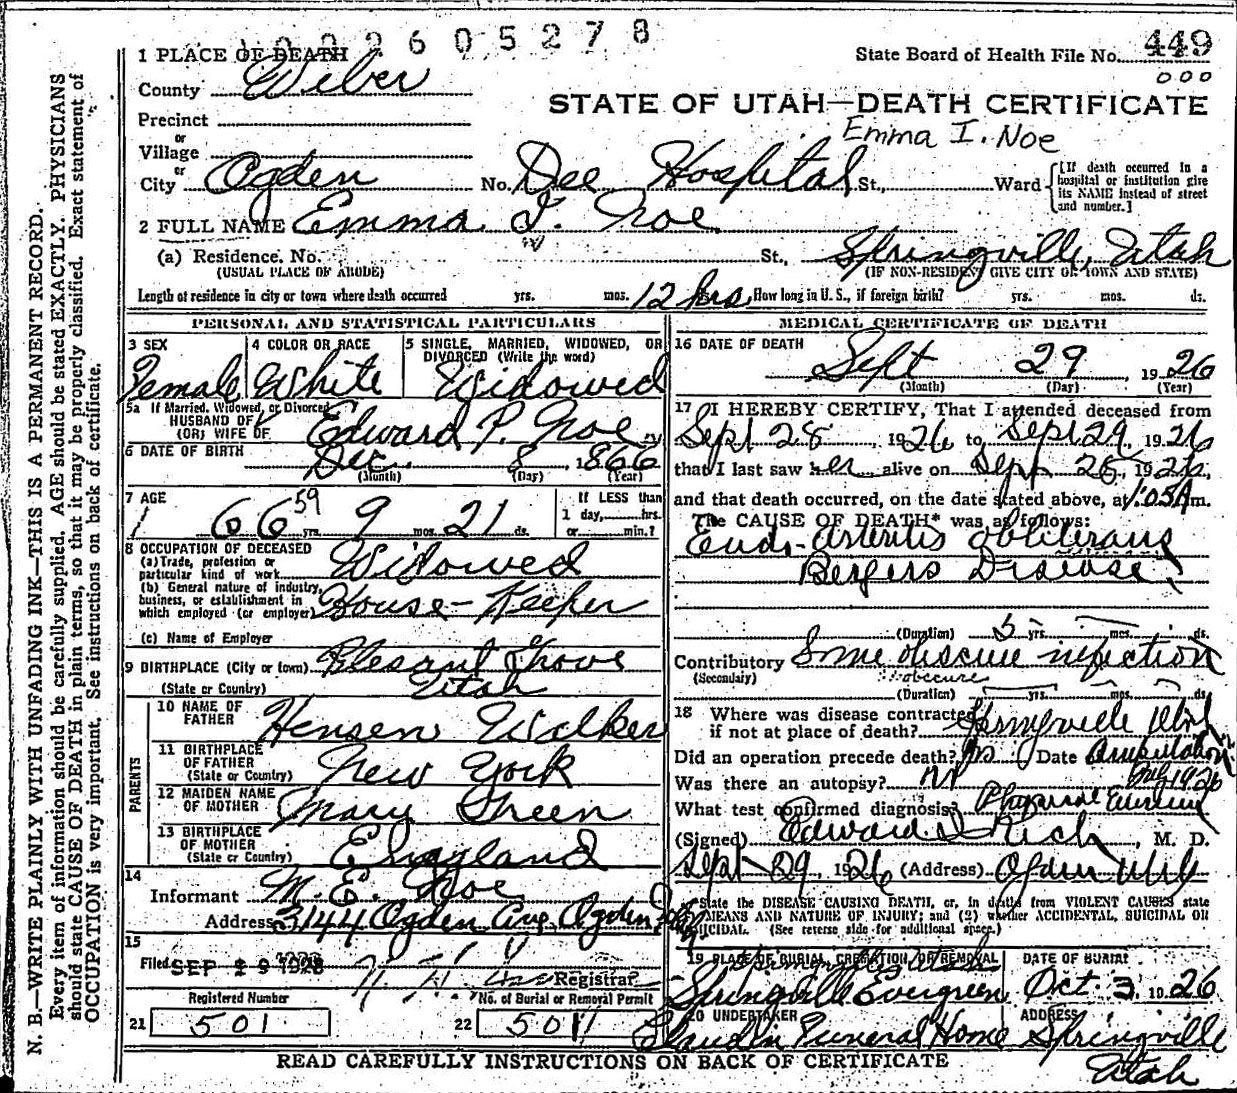 2605278
1 PLACE OF DEATH
State Board of Health File No. 449
000
County Weber
STATE OF UTAH—DEATH CERTIFICATE
Precinct
Emma I. Noe
or
Village
or
City Ogden No. Dee Hospital St., Ward
[If death occurred in a
hospital or institution give
its NAME instead of street
and number.]
2 FULL NAME Emma I. Noe
(a) Residence. No. St., Springville, Utah
(USUAL PLACE OF ABODE) (IF NON-RESIDENT GIVE CITY OR TOWN AND STATE)
Length of residence in city or town where death occurred yrs. mos. 12 hrs How long in U. S., if foreign birth? yrs. mos. ds.
PERSONAL AND STATISTICAL PARTICULARS
3 SEX
Female
4 COLOR OR RACE
White
5 SINGLE, MARRIED, WIDOWED, OR
DIVORCED (Write the word)
Widowed
5a If Married, Widowed, or Divorced
HUSBAND OF
(OR) WIFE OF Edward P. Noe
6 DATE OF BIRTH Dec. 8, 1866
(Month) (Day) (Year)
7 AGE
66 59 yrs. 9 mos. 21 ds.
If LESS than
1 day, hrs.
or min.?
8 OCCUPATION OF DECEASED
(a) Trade, profession or
particular kind of work Widowed
(b) General nature of industry,
business, or establishment in
which employed (or employer) House-Keeper
(c) Name of Employer
9 BIRTHPLACE (City or town) Plesant Grove
(State or Country) Utah
PARENTS
10 NAME OF
FATHER Hensen Walker
11 BIRTHPLACE
OF FATHER
(State or Country) New York
12 MAIDEN NAME
OF MOTHER Mary Green
13 BIRTHPLACE
OF MOTHER
(State or Country) England
14
Informant M. E. Noe
Address 3144 Ogden Ave. Ogden
15
Filed SEP 29 1926 Registrar
Registered Number
21 501
No. of Burial or Removal Permit
22 501
MEDICAL CERTIFICATE OF DEATH
16 DATE OF DEATH
Sept 29, 1926
(Month) (Day) (Year)
17 I HEREBY CERTIFY, That I attended deceased from
Sept 28, 1926 to Sept 29, 1926
that I last saw her alive on Sept 28, 1926,
and that death occurred, on the date stated above, at 1:05 A m.
The CAUSE OF DEATH* was as follows:
Endo-Arteritis Obliterans
Bergers Disease
(Duration) 5 yrs. mos. ds.
Contributory Some obscure infection
(Secondary) obscure
(Duration) yrs. mos. ds.
18 Where was disease contracted
if not at place of death? Springville Utah
Did an operation precede death? Date Amputation
Was there an autopsy? no 1926
What test confirmed diagnosis?
(Signed) Edward I Rich, M. D.
Sept 29 1926 (Address) Ogden Utah
*State the DISEASE CAUSING DEATH, or, in deaths from VIOLENT CAUSES state
MEANS AND NATURE OF INJURY; and (2) whether ACCIDENTAL, SUICIDAL OR
HOMICIDAL. (See reverse side for additional space.)
19 PLACE OF BURIAL, CREMATION OR REMOVAL
Springville Utah
Springville Evergreen
DATE OF BURIAL
Oct. 3, 1926
20 UNDERTAKER
Claudin Funeral Home
ADDRESS
Springville
Utah
READ CAREFULLY INSTRUCTIONS ON BACK OF CERTIFICATE
N. B.—WRITE PLAINLY WITH UNFADING INK—THIS IS A PERMANENT RECORD.
Every item of information should be carefully supplied. AGE should be stated EXACTLY. PHYSICIANS
should state CAUSE OF DEATH in plain terms, so that it may be properly classified. Exact statement of
OCCUPATION is very important. See instructions on back of certificate.